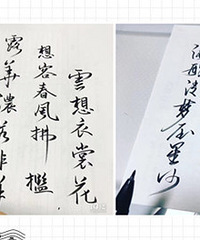 雲想衣裳花
想容春風拂檻
露華濃若非羣
满船清梦压星河